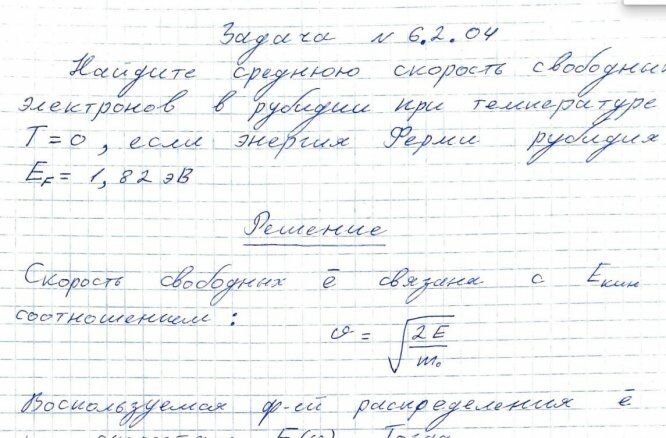 Задача № 6.2.04
Найдите среднюю скорость свободных
электронов в рубидии при температуре
T=0, если энергия Ферми рубидия
E_F = 1,82 эВ
Решение
Скорость свободных ē связана с E_кин
соотношением: v = √(2E/m₀)
Воспользуемся ф-ей распределения ē